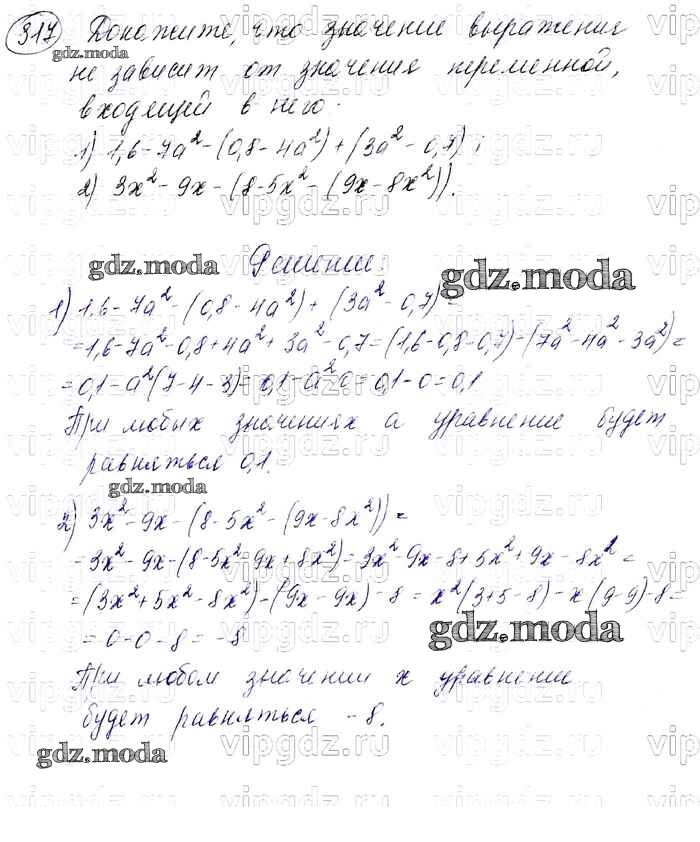 317 Докажите, что значение выражения
gdz.moda
не зависит от значения переменной,
входящей в него.
1) 1,6-7a²-(0,8-4a²)+(3a²-0,7);
2) 3x²-9x-(8-5x²-(9x-8x²)).
gdz.moda Решение:
gdz.moda
1) 1,6-7a²-(0,8-4a²)+(3a²-0,7)=
=1,6-7a²-0,8+4a²+3a²-0,7=(1,6-0,8-0,7)-(7a²-4a²-3a²)=
=0,1-a²(7-4-3)=0,1-a²·0=0,1-0=0,1
При любых значениях a уравнение будет
равняться 0,1.
gdz.moda
2) 3x²-9x-(8-5x²-(9x-8x²))=
=3x²-9x-(8-5x²-9x+8x²)=3x²-9x-8+5x²+9x-8x²=
=(3x²+5x²-8x²)-(9x-9x)-8=x²(3+5-8)-x(9-9)-8=
=0-0-8=-8
gdz.moda
При любом значении x уравнение
будет равняться -8.
gdz.moda
vipgdz.ru